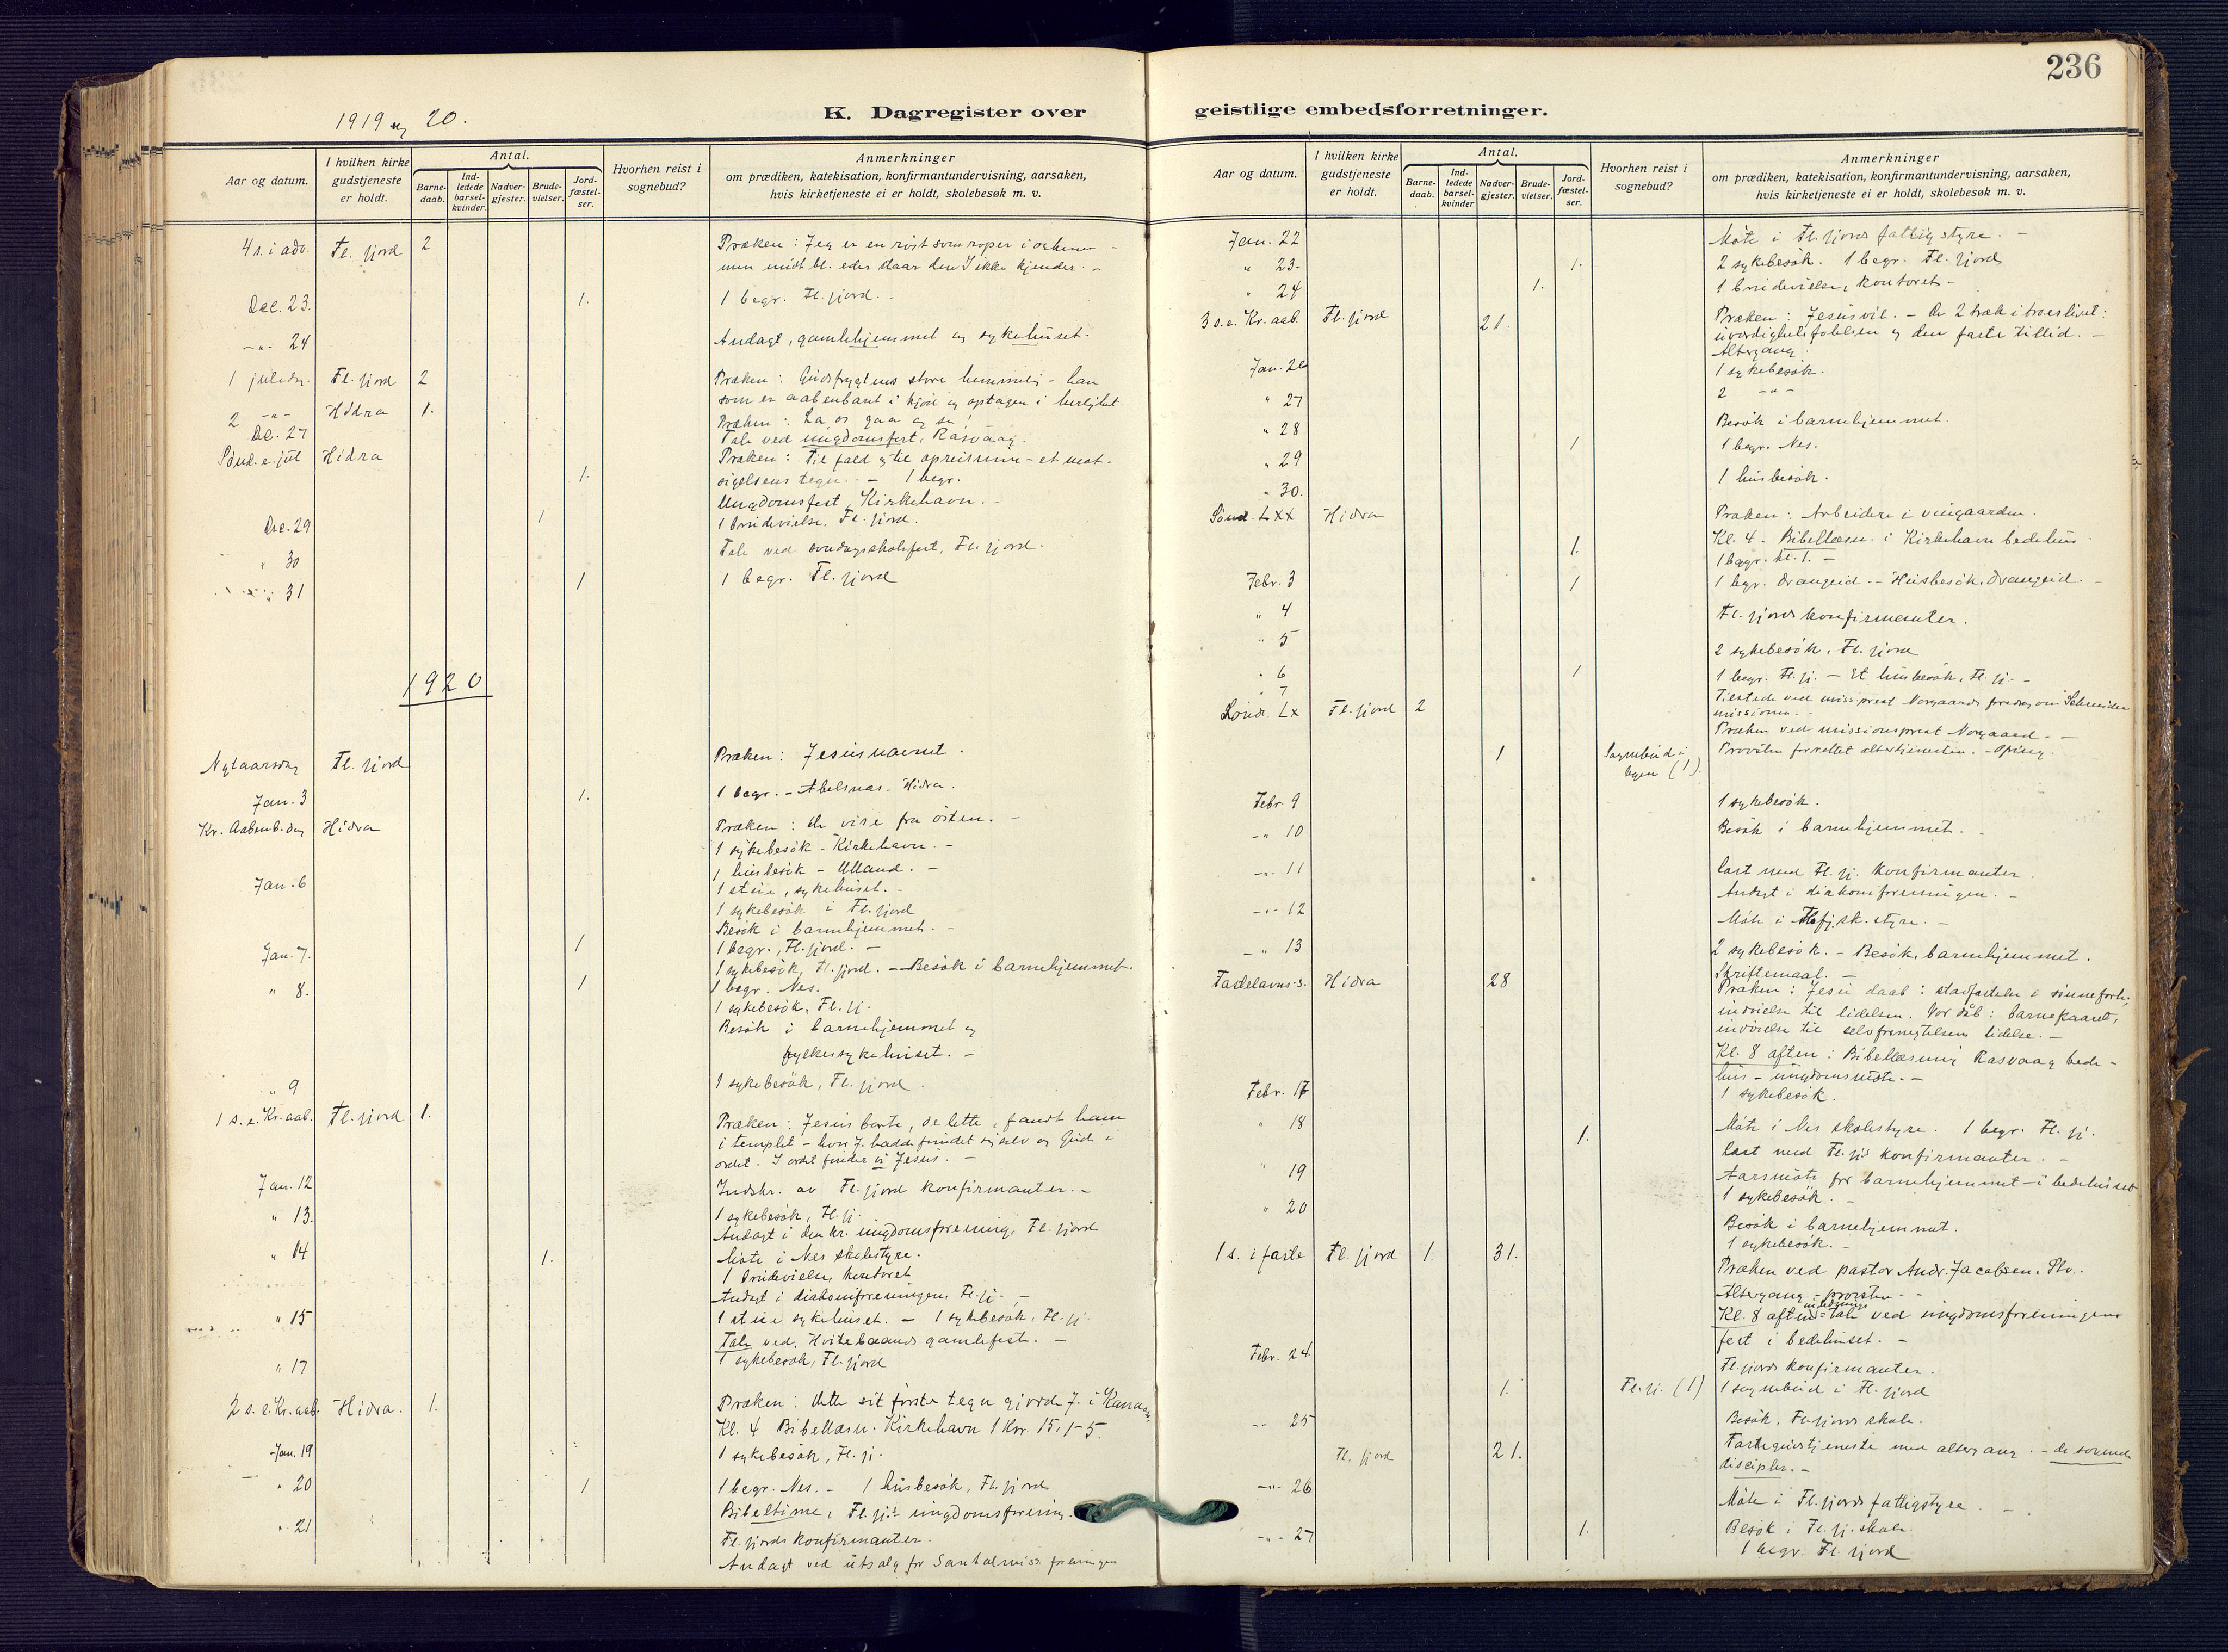 236
1919 og 20.
K. Dagregister over geistlige embedsforretninger.
Aar og datum.
I hvilken kirke gudstjeneste er holdt.
Antal.
Barne-daab.
Ind-ledede barsel-kvinder.
Nadver-gjester.
Brude-vielser.
Jord-fæstel-ser.
Hvorhen reist i sognebud?
Anmerkninger
om prædiken, katekisation, konfirmantundervisning, aarsaken,
hvis kirketjeneste ei er holdt, skolebesøk m. v.
4 s. i adv. Fl. fjord 2 Præken: Jeg er en røst som roper i
midt bl. eder staar den I ikke kjender. -
Dec. 23. 1. 1 begr. Fl. fjord. -
-"- 24 Andagt, gamlehjemmet og sykehuset.
1 juledag. Fl. fjord 2 Præken: Gudsfrygtens store hemmelig - han
som er aabenbaret i kjød og optagen i herlighet
2 -"- Hidra 1. Præken: La os gaa og se!
De. 27 Tale ved ungdomsfest, Rasvaag.
Sønd. e. jul Hidra Præken: Til fald og til opreisning - et mot-
sigelsens tegn. - 1. 1 begr.
Ungdomsfest, Kirkehavn. -
Dec. 29 1 1 brudevielse, Fl. fjord.
" 30 Tale ved søndagsskolefest, Fl. fjord.
" 31 1 1 begr. Fl. fjord
1920
Nytaarsdag Fl. fjord Præken: Jesusnavnet.
Jan. 3 1. 1 begr. - Abelsnæs - Hidra.
Kr. Aabenb. dag Hidra Præken: De vise fra østen. -
1 sykebesøk - Kirkehavn. -
1 husbesøk - Ulland. -
Jan. 6 1 stue, sykehuset. -
1 sykebesøk i Fl. fjord
Besøk i barnehjemmet. -
Jan. 7. 1 1 begr., Fl. fjord. -
1 sykebesøk, Fl. fjord. - Besøk i barnehjemmet.
" 8. 1 1 begr. Nes.
1 sykebesøk, Fl. fj.
Besøk i barnehjemmet og
fylkessykehuset. -
" 9 1 sykebesøk, Fl. fjord.
1 s. e. Kr. aab. Fl. fjord 1. Præken: Jesus borte, de lette, fandt ham
i templet - hvor J. hadde fundet sig selv og Gud i
ordet. I ordet finder vi Jesus. -
Jan. 12 Indskr. av Fl. fjord konfirmanter. -
" 13. 1 sykebesøk, Fl. fj.
Andagt i den kr. ungdomsforening, Fl. fjord
" 14 1. Møte i Nes skolestyre.
1 brudevielse, kontoret
Andagt i diakoniforeningen, Fl. fj. -
" 15 1 stue sykehuset. - 1 sykebesøk, Fl. fj.
Tale ved Hvitebaands gamlefest. -
" 17 1 sykebesøk, Fl. fjord
2 s. e. Kr. aab. Hidra. 1. Præken: Dette sit første tegn gjorde J. i Kana
Kl. 4 Bibellæsn. Kirkehavn 1 Kor. 15, 1-5.
Jan. 19 1 sykebesøk, Fl. fj.
" 20 1 1 begr. Nes. - 1 husbesøk, Fl. fjord
Bibeltime, Fl. fj.s ungdomsforening.
" 21 Fl. fjords konfirmanter.
Andagt ved utsalg for Santalmiss. foreningen
Aar og datum.
I hvilken kirke gudstjeneste er holdt.
Antal.
Barne-daab.
Ind-ledede barsel-kvinder
Nadver-gjester.
Brude-vielser.
Jord-fæstel-ser.
Hvorhen reist i sognebud?
Anmerkninger
om prædiken, katekisation, konfirmantundervisning, aarsaken,
hvis kirketjeneste ei er holdt, skolebesøk m. v.
Jan. 22 Møte i Fl. fjords fattigstyre. -
" 23. 1. 2 sykebesøk. 1 begr. Fl. fjord
" 24 1. 1 brudevielse, kontoret -
3 s. e. Kr. aab. Fl. fjord 21. Præken: Jesus vil. - De 2 træk i troeslivet:
uværdighetsfølelsen og den faste tillid. -
Altergang.
Jan. 26 1 sykebesøk.
" 27 2 -"-
" 28 Besøk i barnehjemmet.
" 29 1 1 begr. Nes.
" 30. 1 husbesøk.
Sønd. LXX Hidra Præken: Arbeidere i vingaarden.
Kl. 4 - Bibellæsn. i Kirkehavn bedehus
1. 1 begr.
Febr. 3 1 1 begr. Drangeid - Husbesøk, Drangeid. -
" 4 Fl. fjords konfirmanter.
" 5 2 sykebesøk, Fl. fjord
" 6 1 1 begr. Fl. fj. - Et husbesøk, Fl. fj. -
" 7 Tilstede ved miss.prest Norgaards foredrag om
missionen. -
Sønd. Lx Fl. fjord 2 Præken ved missionsprest Norgaard. -
1 Sognebud i byen (1). Provsten forrettet altertjenesten.
Febr. 9 1 sykebesøk.
-"- 10 Besøk i barnehjemmet. -
-"- 11 Læst med Fl. fj. konfirmanter.
Andagt i diakoniforeningen. -
-"- 12 Møte i Fl. fj. sk. styre. -
-"- 13 2 sykebesøk. - Besøk, barnehjemmet.
Fastelavns-s. Hidra 28 Skriftemaal. -
Præken: Jesu daab:
indvielse til lidelsen. Vor dåb: barnekaaret,
indvielse til selvfornegtelsens lidelse. -
Kl. 8 aften: Bibellæsning Rasvaag bede-
hus - ungdomsmøte. -
Febr. 17 1 sykebesøk.
" 18 1. Møte i Nes skolestyre. 1 begr. Fl. fj.
Læst med Fl. fj.s konfirmanter. -
" 19 Aarsmøte for barnehjemmet - i bedehuset
1 sykebesøk. -
" 20 Besøk i barnehjemmet.
1 sykebesøk. -
1 s. i faste Fl. fjord 1. 31. Præken ved pastor Andr. Jacobsen, Stv.
Altergang - provsten. -
Kl. 8 aften - tale ved ungdomsforeningens
fest i bedehuset. -
Febr. 24 Fl. fjords konfirmanter.
1. Fl. fj. (1) 1 sognebud i Fl. fjord
-"- 25 Besøk, Fl. fjords skole.
Fl. fjord 21. Fastegudstjeneste med altergang. - de sovende
disciple. -
-"- 26 Møte i Fl. fjords fattigstyre. -
-"- 27 1. Besøk i Fl. fj. skole.
1 begr. Fl. fjord